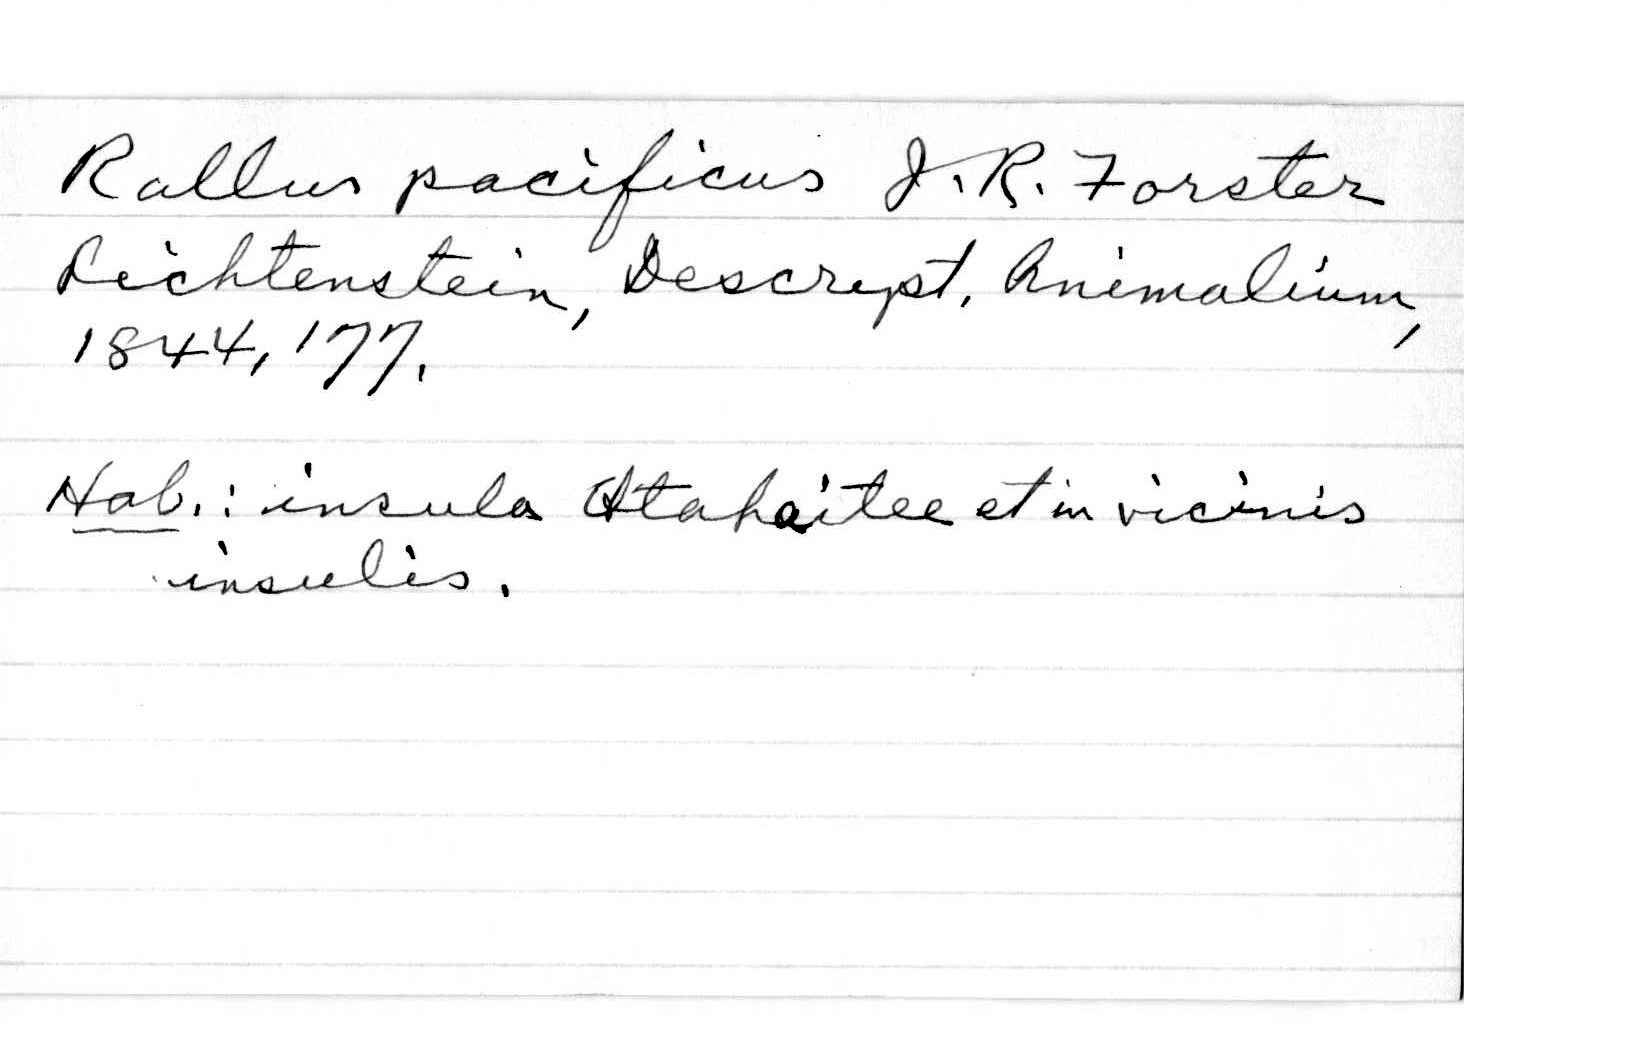 Rallus pacificus J. R. Forster
Lichtenstein, Descript. Animalium,
1844, 177.
Hab.: insula Otaheitee et in vicinis
insulis.